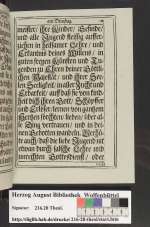 am Dinstag.
meister/ ihre Kinder/ Gesinde/
und alle Jugend fleißig auffer-
ziehen in heilsamer Lehre/ und
Erkantnis deines Willens/ in
guten freyen Künsten und Tu-
genden zu Ehren deiner Göttli-
chen Majestät/ und ihrer See-
len Seeligkeit/ in aller Zucht und
Erbarkeit/ auff daß sie von Kind-
heit dich ihren Gott/ Schöpffer
und Erlöser lernen von gantzem
Hertzen fürchten/ lieben/ über al-
le Ding vertrauen/ und in dei-
nen Geboten wandeln.
auch/ daß die liebe Jugend nicht
etwan durch falsche Lehre und
unrechten Gottesdienst/ oder
Herzog August Bibliothek Wolfenbüttel
Signatur: 216.20 Theol.
http://diglib.hab.de/drucke/216-20-theol/start.htm